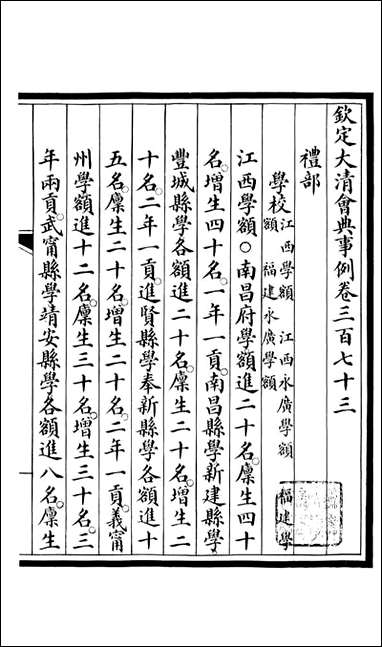 欽定大清會典事例卷三百七十三
禮部
學校江西學額 江西永廣學額 福建學
額 福建永廣學額
江西學額○南昌府學額進二十名廩生四十
名增生四十名一年一貢南昌縣學新建縣學
豐城縣學各額進二十名廩生二十名增生二
十名二年一貢進賢縣學奉新縣學各額進十
五名廩生二十名增生二十名二年一貢義甯
州學額進十二名廩生三十名增生三十名三
年兩貢武甯縣學靖安縣學各額進八名廩生